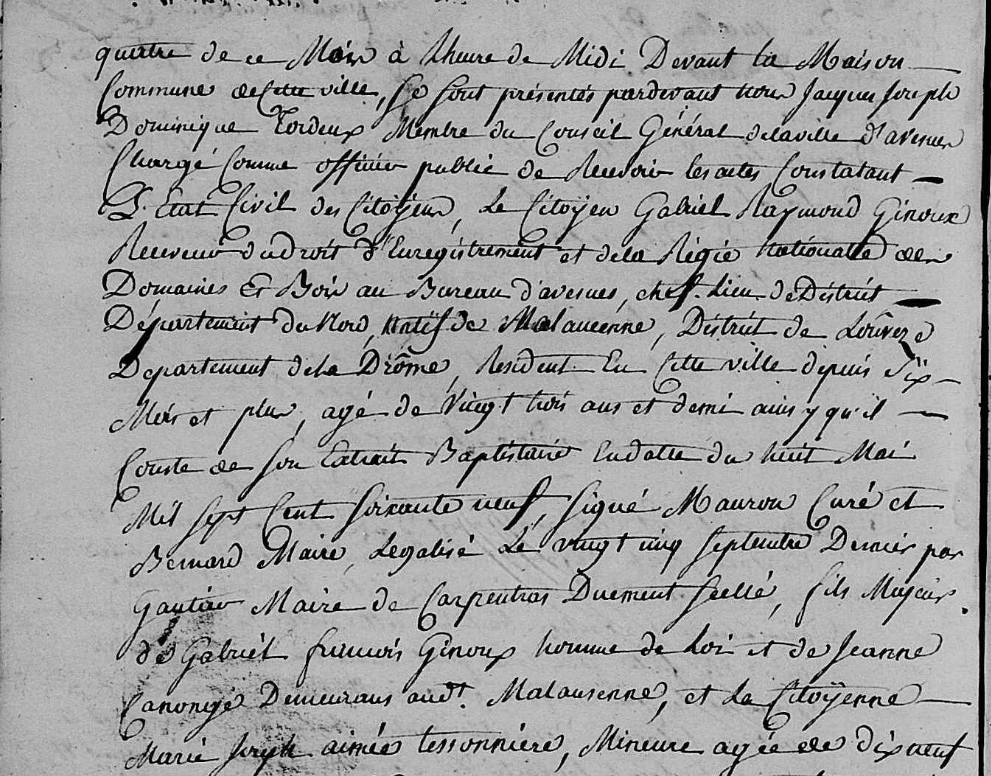 quatre de ce Mois à L'heure de Midi Devant la Maison
Commune de Cette ville, se sont présentés pardevant nous Jacques Joseph
Dominique Tordeux Membre du Conseil Général de la ville d'avesnes
Chargé Comme officier public de Recevoir les actes Constatant
L'Etat Civil des Citoÿens, Le Citoÿen Gabriel Raymond Ginoux
Receveur du Droit d'Enregistrement et de la Régie Nationale des
Domaines Et Bois au Bureau d'avesnes, chef. Lieu de District
Département du Nord, natif de Malaucenne, District de Louvèze
Departement de la Drôme, Resident En Cette ville depuis Six
Mois et plus, agé de Vingt trois ans et demi ainsy qu'il
Conste de son Extrait Baptistaire En datte du huit Mai
Mil sept Cent soixante neuf, signé Mauron Curé et
Bernard Maire, Legalisé Le vingt cinq septembre Dernier par
Gautier Maire de Carpentras Duement scellé, fils Majeur
de Gabriël françois Ginoux homme de Loi et de Jeanne
Canonge Demeurans audt. Malausenne, et La Citoÿenne
Marie Joseph aimée tessonnière, Mineure agée de dix neuf